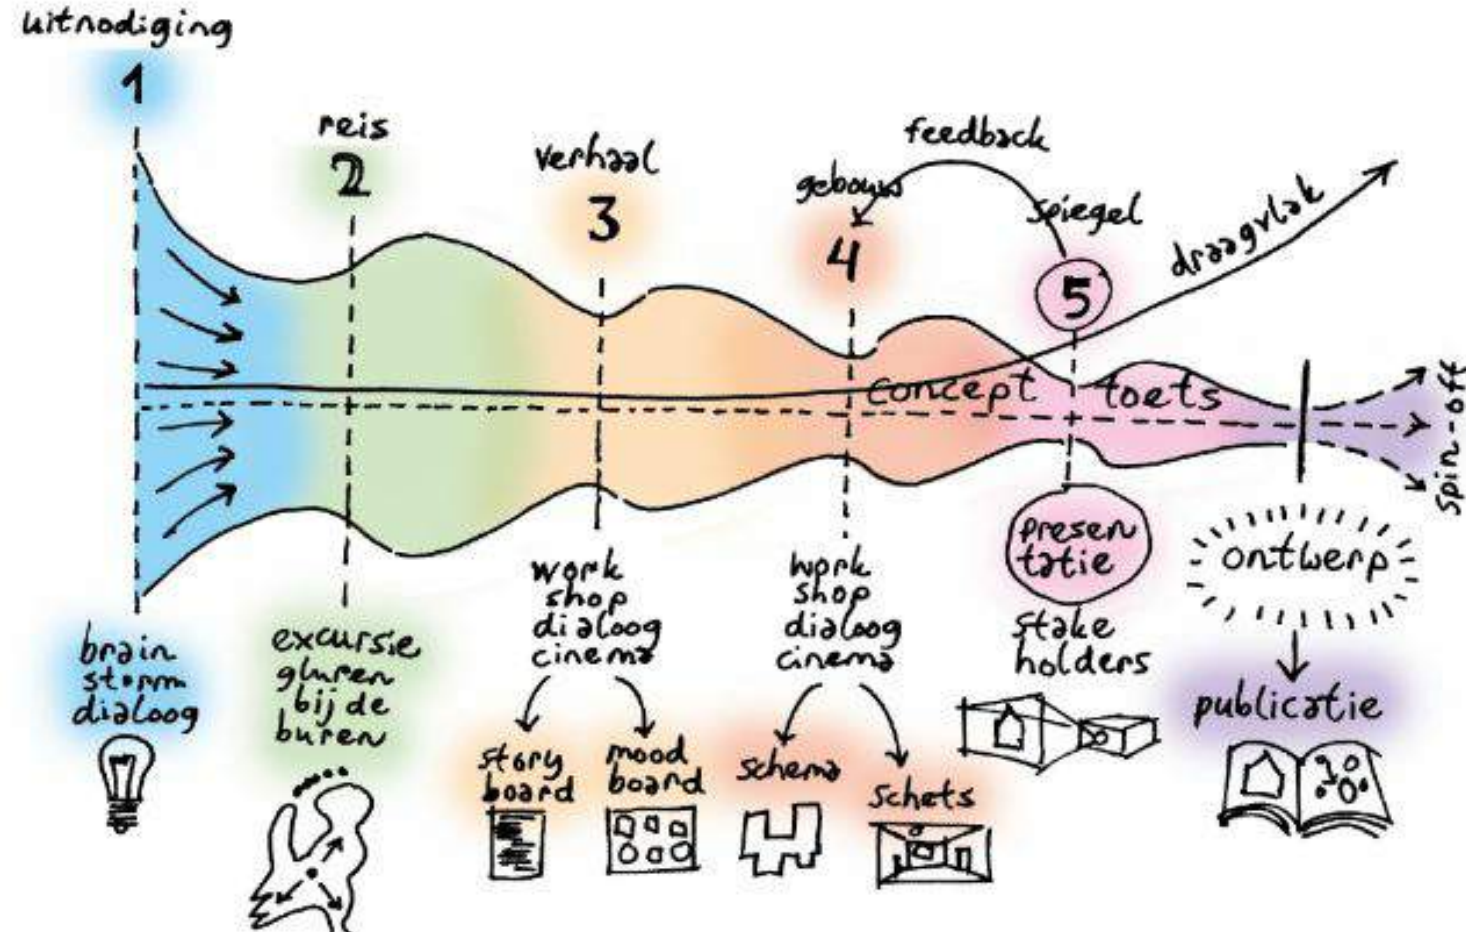 uitnodiging
1
reis
2
verhaal
3
gebouw
4
feedback
spiegel
5
draagvlak
concept
toets
spin-off
brain
storm
dialoog
excursie
gluren
bij de
buren
work
shop
dialoog
cinema
story
board
mood
board
work
shop
dialoog
cinema
schema
schets
presen
tatie
stake
holders
ontwerp
publicatie